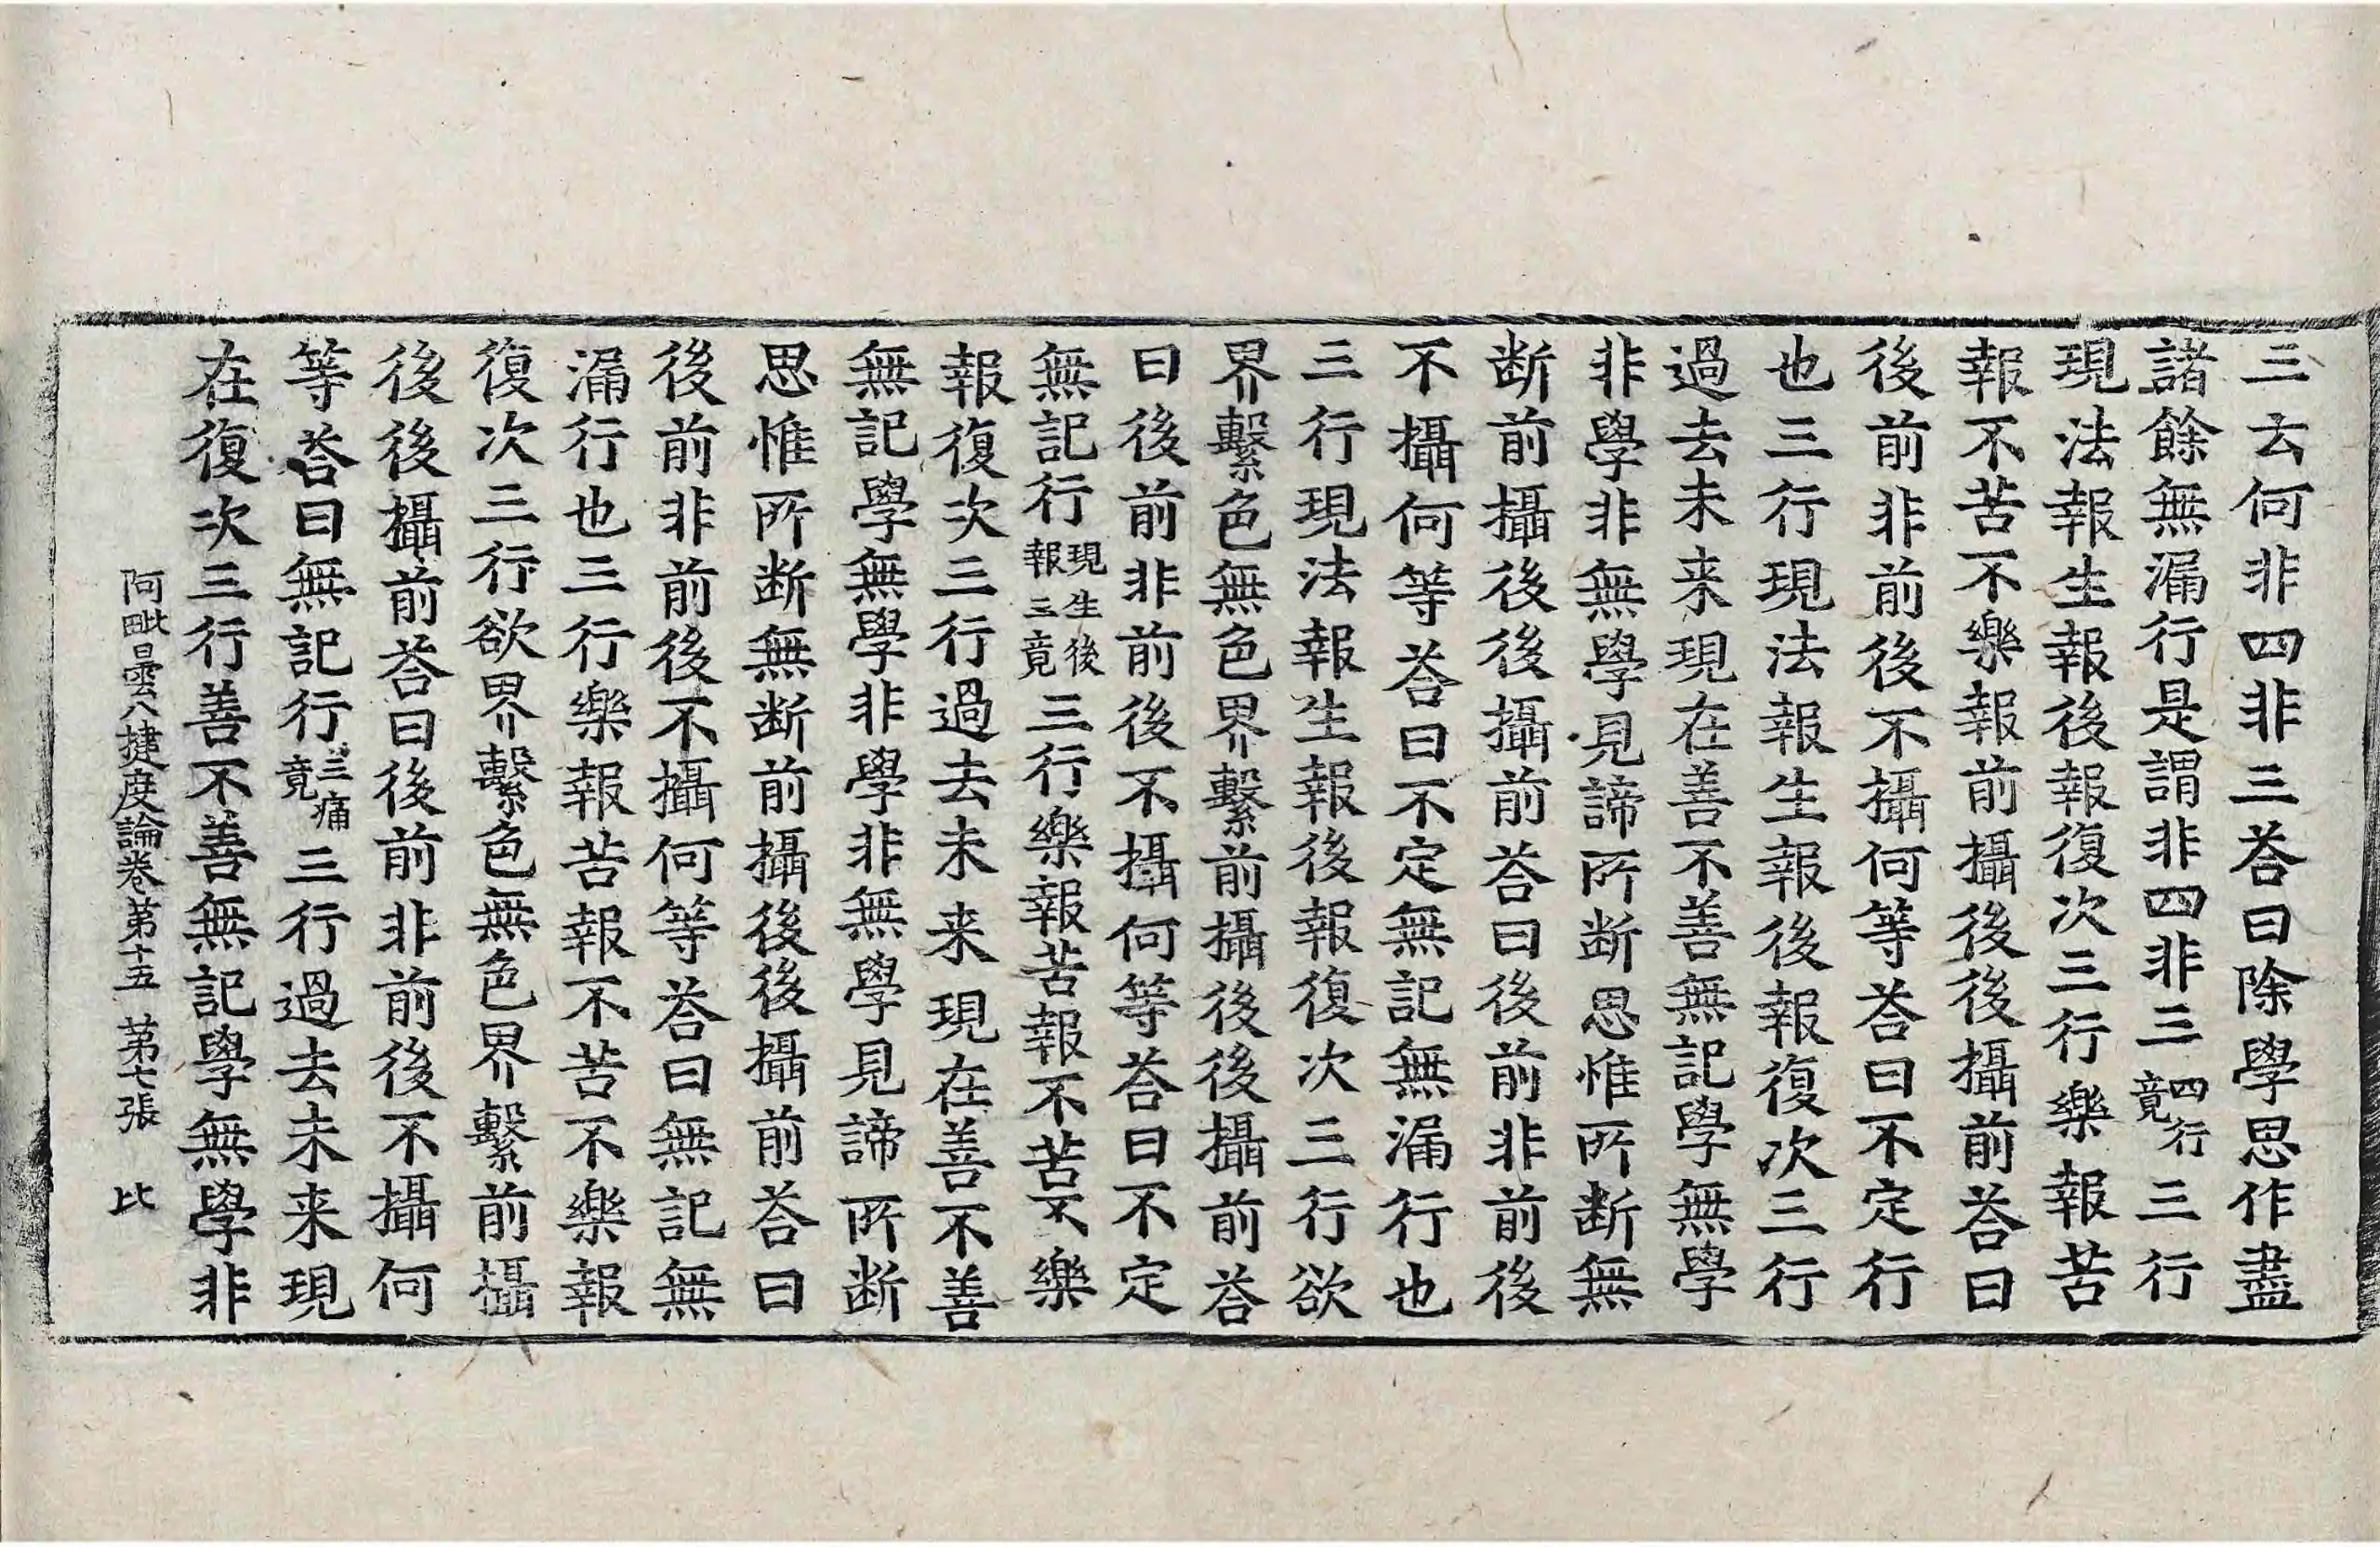 三云何非四非三荅曰除學思作盡
諸餘無漏行是謂非四非三四行竟三行
現法報生報後報復次三行樂報苦
報不苦不樂報前攝後後攝前荅曰
後前非前後不攝何等荅曰不定行
也三行現法報生報後報復次三行
過去未来現在善不善無記學無學
非學非無學見諦所断思惟所断無
断前攝後後攝前荅曰後前非前後
不攝何等荅曰不定無記無漏行也
三行現法報生報後報復次三行欲
界繫色無色界繫前攝後後攝前荅
曰後前非前後不攝何等荅曰不定
無記行現生後報三竟三行樂報苦報不苦不樂
報復次三行過去未来現在善不善
無記學無學非學非無學見諦所断
思惟所断無断前攝後後攝前荅曰
後前非前後不攝何等荅曰無記無
漏行也三行樂報苦報不苦不樂報
復次三行欲界繫色無色界繫前攝
後後攝前荅曰後前非前後不攝何
等荅曰無記行三痛竟三行過去未来現
在復次三行善不善無記學無學非
阿毗曇八揵度論卷第十五 第七張 比